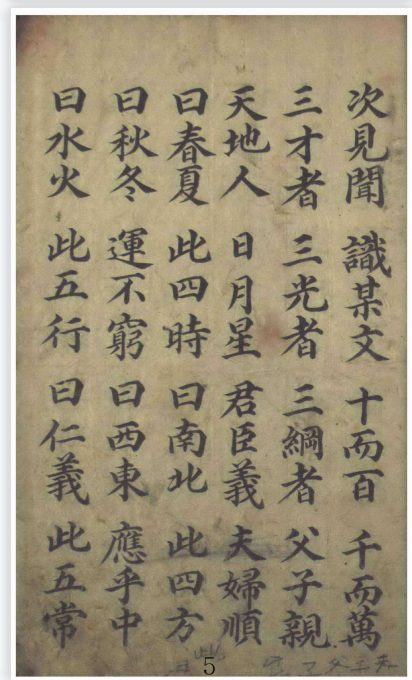 次見聞 識某文 十而百 千而萬
三才者 三光者 三綱者 父子親
天地人 日月星 君臣義 夫婦順
曰春夏 此四時 曰南北 此四方
曰秋冬 運不窮 曰西東 應乎中
曰水火 此五行 曰仁義 此五常
5